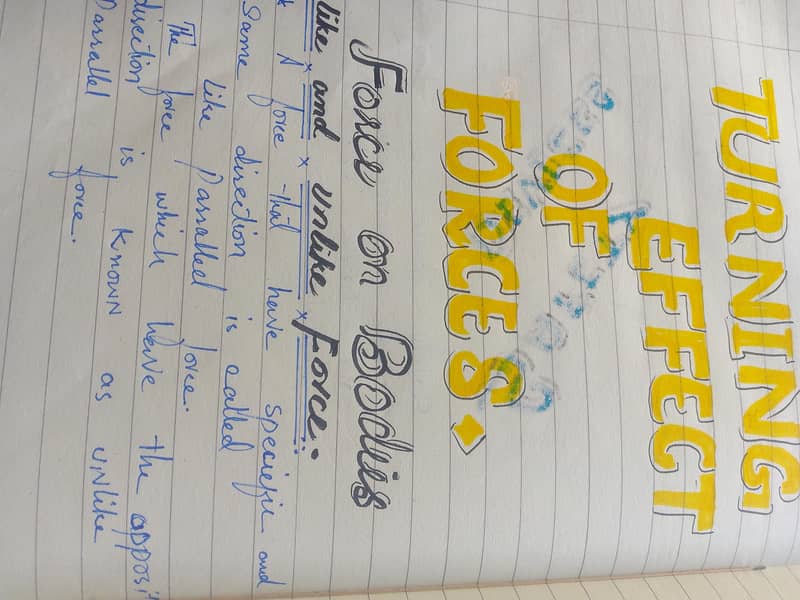 TURNING
EFFECT
OF
FORCES
Force on Bodis
like and unlike Force:
A force that have speciefic and
Same direction is called
like Parralled force.
The force which have the opposit
direction is KNOWN as UNlike
Parralled force.